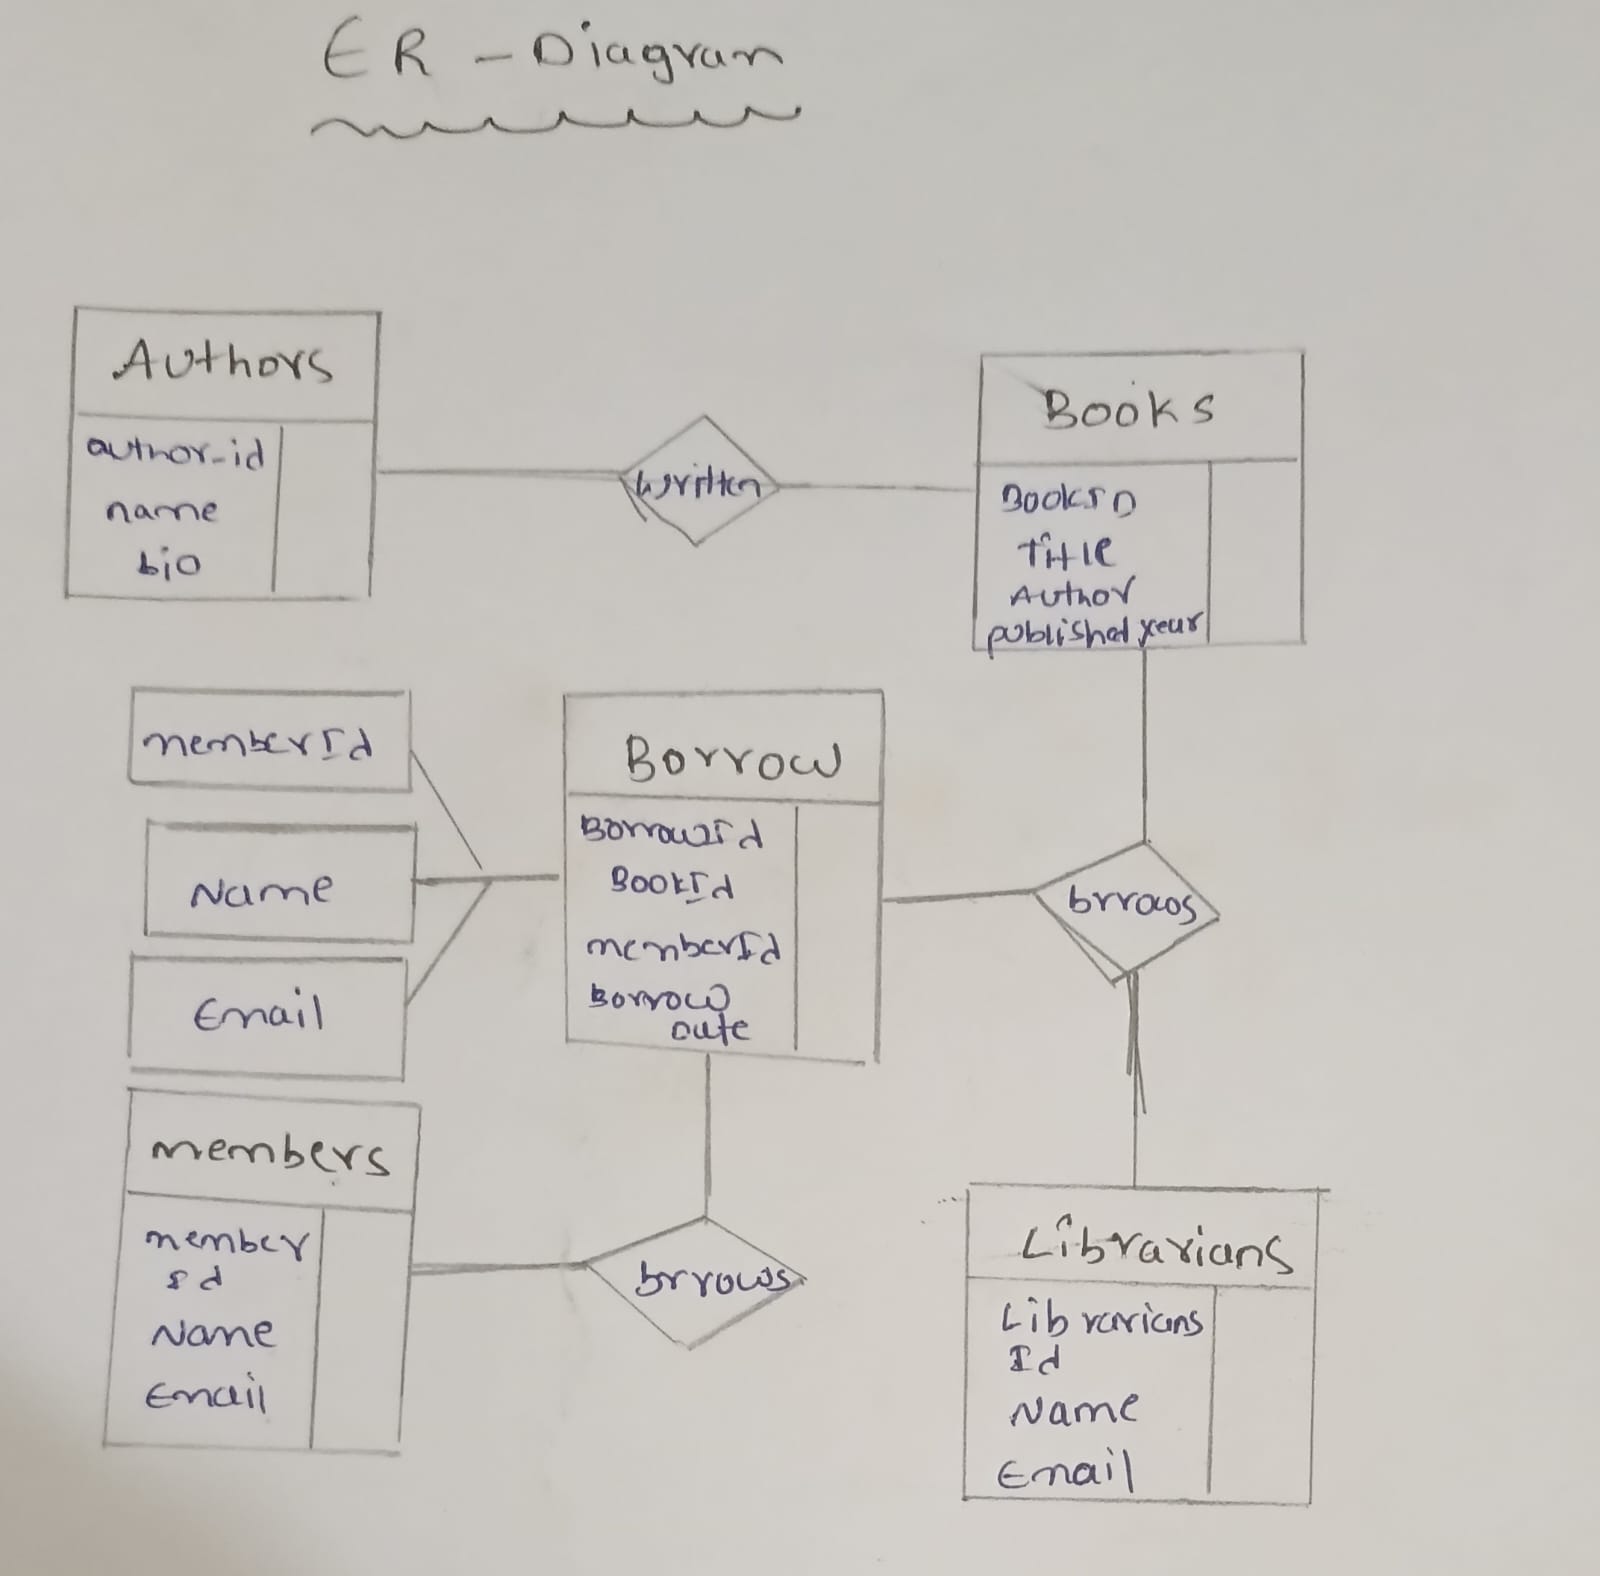 ER - Diagram
Authors
author-id
name
bio
written
Books
BookID
Title
Author
published year
memberId
Name
Email
Borrow
BorrowId
BookId
memberId
Borrow
Date
brrows
members
member
Id
Name
Email
brrows
Librarians
Librarians
Id
Name
Email